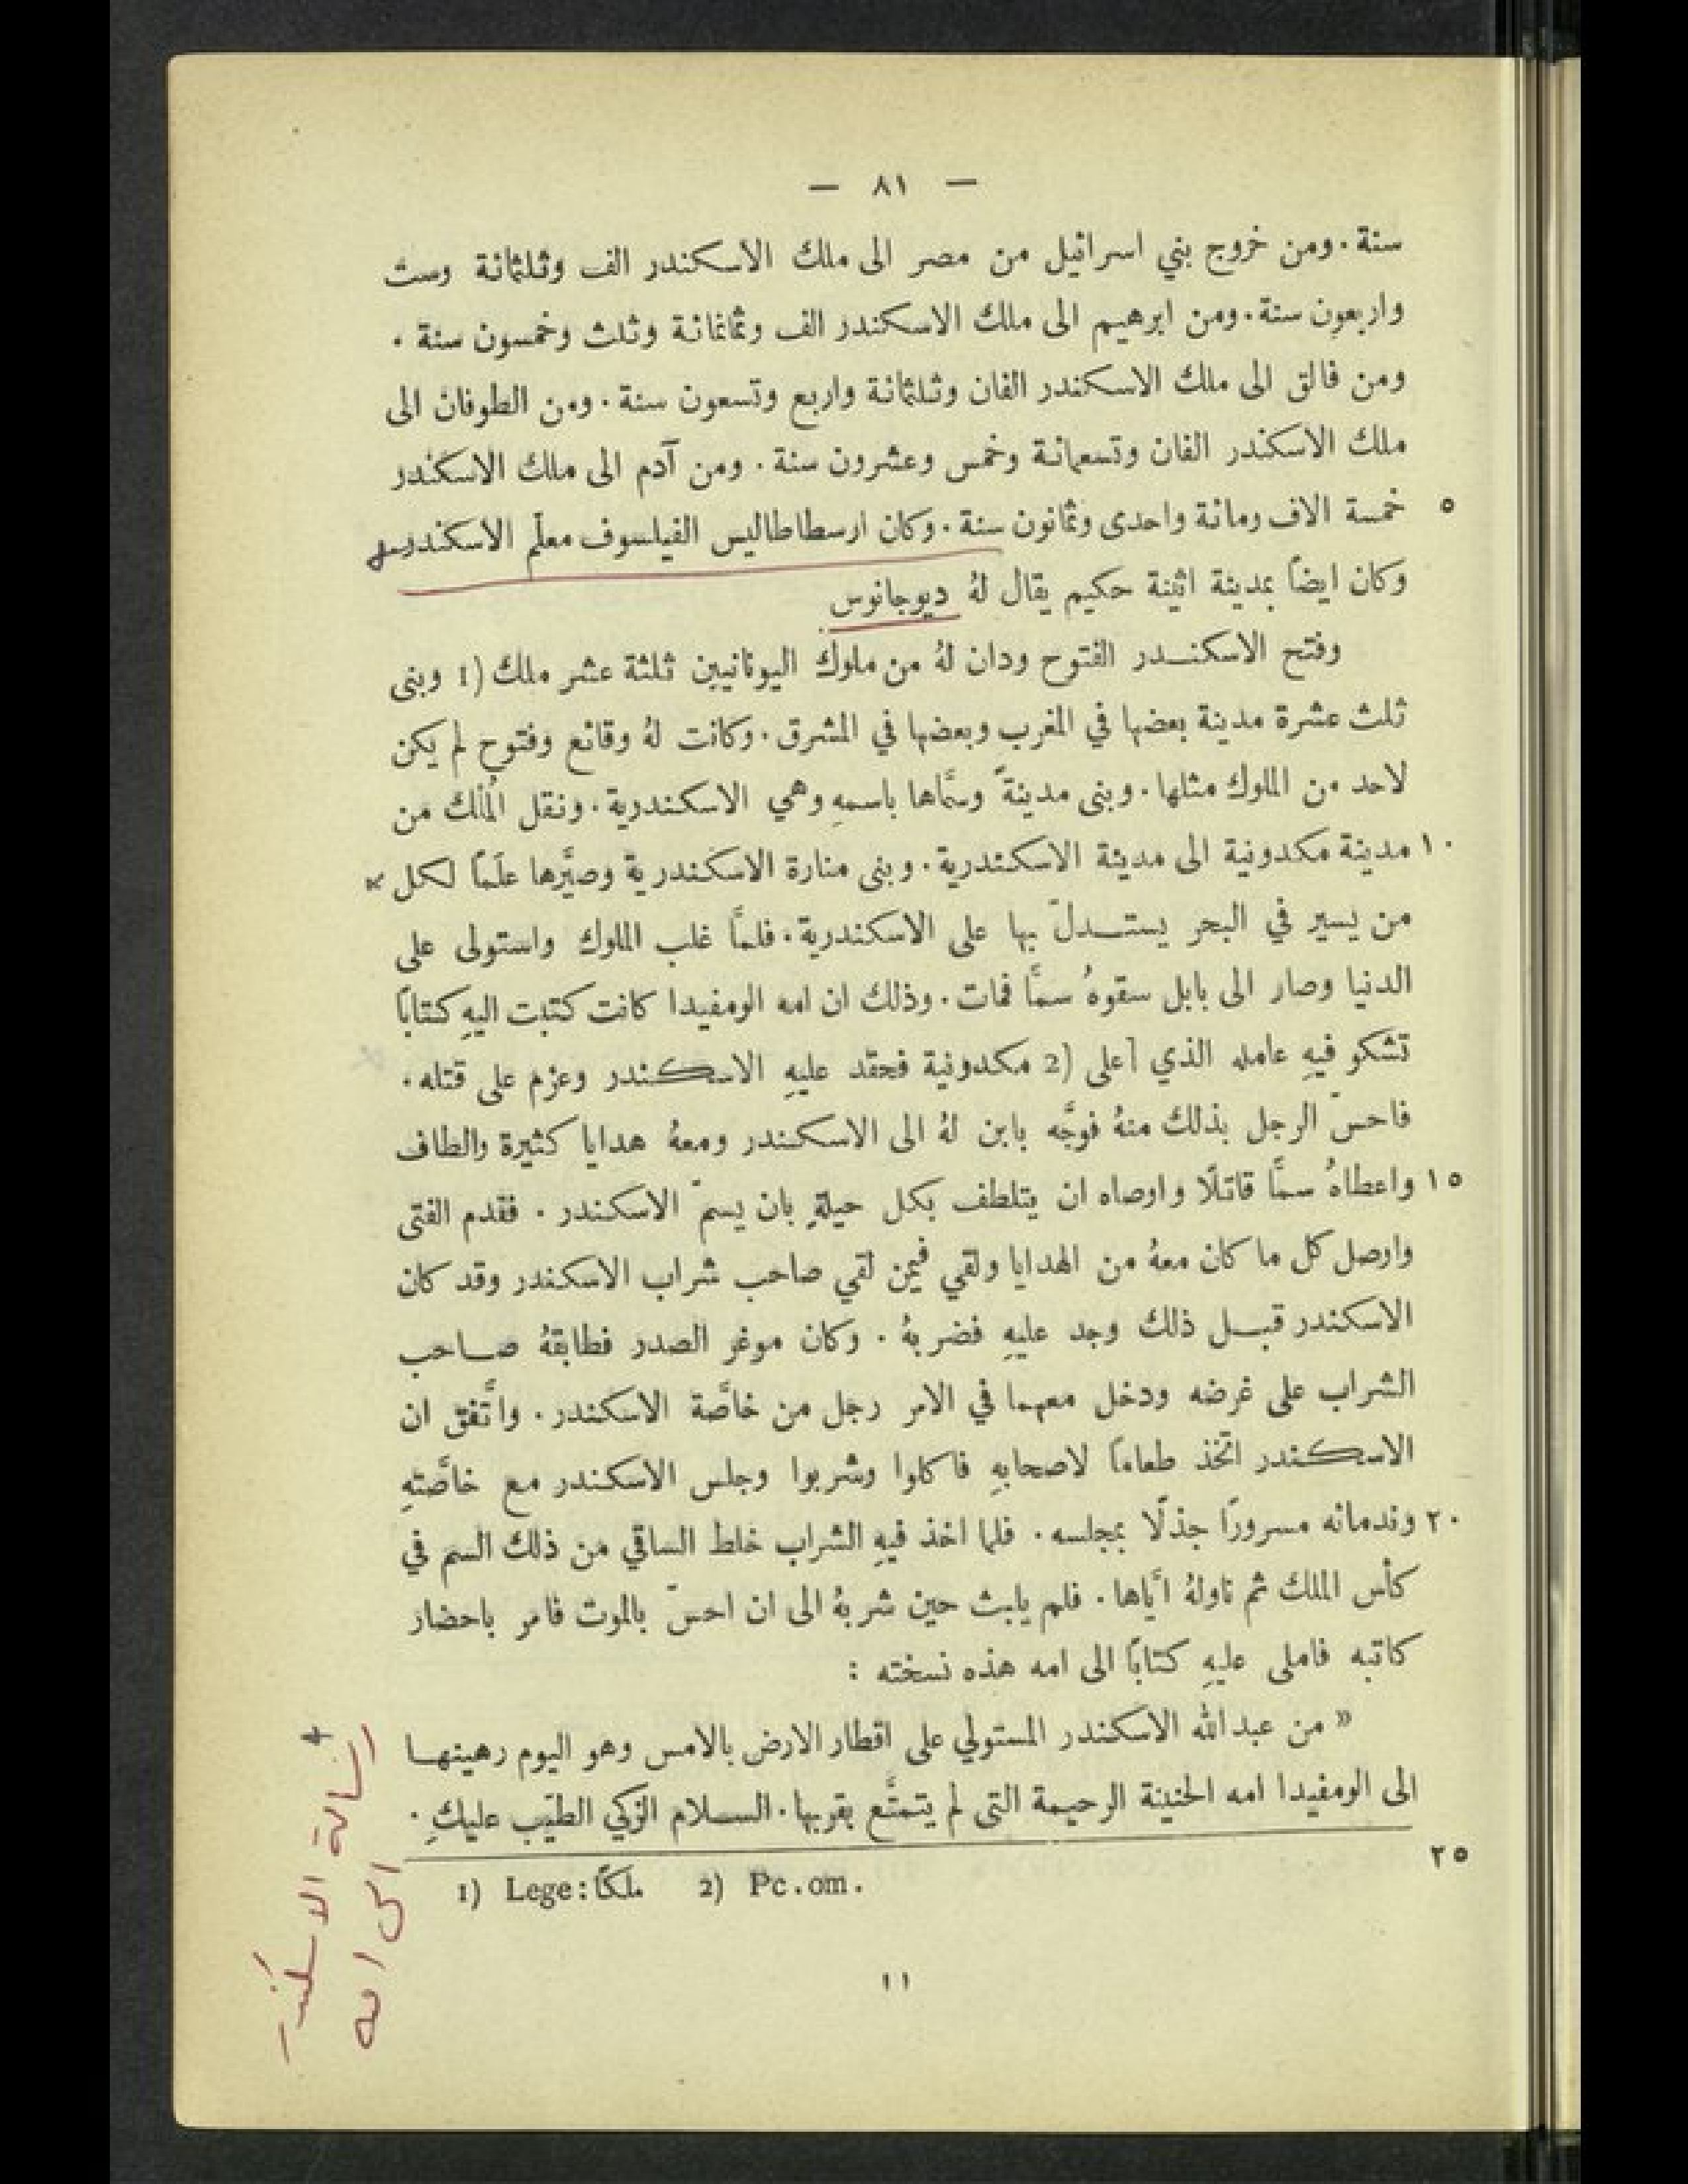 — ٨١ —
سنة . ومن خروج بني اسرائيل من مصر الى ملك الاسكندر الف وثلثمائة وست
واربعون سنة . ومن ابرهيم الى ملك الاسكندر الف وثمانمائة وثلث وخمسون سنة .
ومن فالق الى ملك الاسكندر الفان وثلثمائة واربع وتسعون سنة . ومن الطوفان الى
ملك الاسكندر الفان وتسعمائة وخمس وعشرون سنة . ومن آدم الى ملك الاسكندر
٥ خمسة الاف ومائة واحدى وثمانون سنة . وكان ارسطاطاليس الفيلسوف معلّم الاسكندر
وكان ايضاً بمدينة اثينة حكيم يقال لهُ ديوجانوس
وفتح الاسكندر الفتوح ودان لهُ من ملوك اليونانيين ثلثة عشر ملك (1 وبنى
ثلث عشرة مدينة بعضها في المغرب وبعضها في المشرق . وكانت لهُ وقائع وفتوح لم يكن
لاحد من الملوك مثلها . وبنى مدينةً وسمَّاها باسمهِ وهي الاسكندرية . ونقل المُلْك من
١٠ مدينة مكدونية الى مدينة الاسكندرية . وبنى منارة الاسكندرية وصيَّرها علَماً لكل
من يسير في البحر يستدلّ بها على الاسكندرية . فلمَّا غلب الملوك واستولى على
الدنيا وصار الى بابل سقوهُ سمَّا فمات . وذلك ان امه الومفيدا كانت كتبت اليهِ كتاباً
تشكو فيهِ عامله الذي [على (2 مكدونية فحقد عليهِ الاسكندر وعزم على قتله .
فاحسّ الرجل بذلك منهُ فوجَّه بابن لهُ الى الاسكندر ومعهُ هدايا كثيرة والطاف
١٥ واعطاهُ سمَّا قاتلًا واوصاه ان يتلطف بكل حيلةٍ بان يسمّ الاسكندر . فقدم الفتى
واوصل كل ما كان معهُ من الهدايا ولقي فيمن لقي صاحب شراب الاسكندر وقد كان
الاسكندر قبل ذلك وجد عليهِ فضربهُ . وكان موغر الصدر فطابقهُ صاحب
الشراب على غرضه ودخل معهما في الامر رجل من خاصَّة الاسكندر . واتَّفق ان
الاسكندر اتّخذ طعاماً لاصحابهِ فاكلوا وشربوا وجلس الاسكندر مع خاصَّتهِ
٢٠ وندمائه مسرورًا جذلًا بمجلسه . فلما اخذ فيهِ الشراب خلط الساقي من ذلك السم في
كأس الملك ثم ناولهُ ايَّاها . فلم يلبث حين شربهُ الى ان احسّ بالموت فامر باحضار
كاتبه فاملى عليهِ كتابًا الى امه هذه نسخته :
« من عبدالله الاسكندر المستولي على اقطار الارض بالامس وهو اليوم رهينها
الى الومفيدا امه الحنينة الرحيمة التي لم يتمتَّع بقربها . السلام الزكي الطيّب عليكِ .
٢٥
1) Lege: ملكًا 2) Pc. om.
١١
رسالة الاسكندر
الى امه